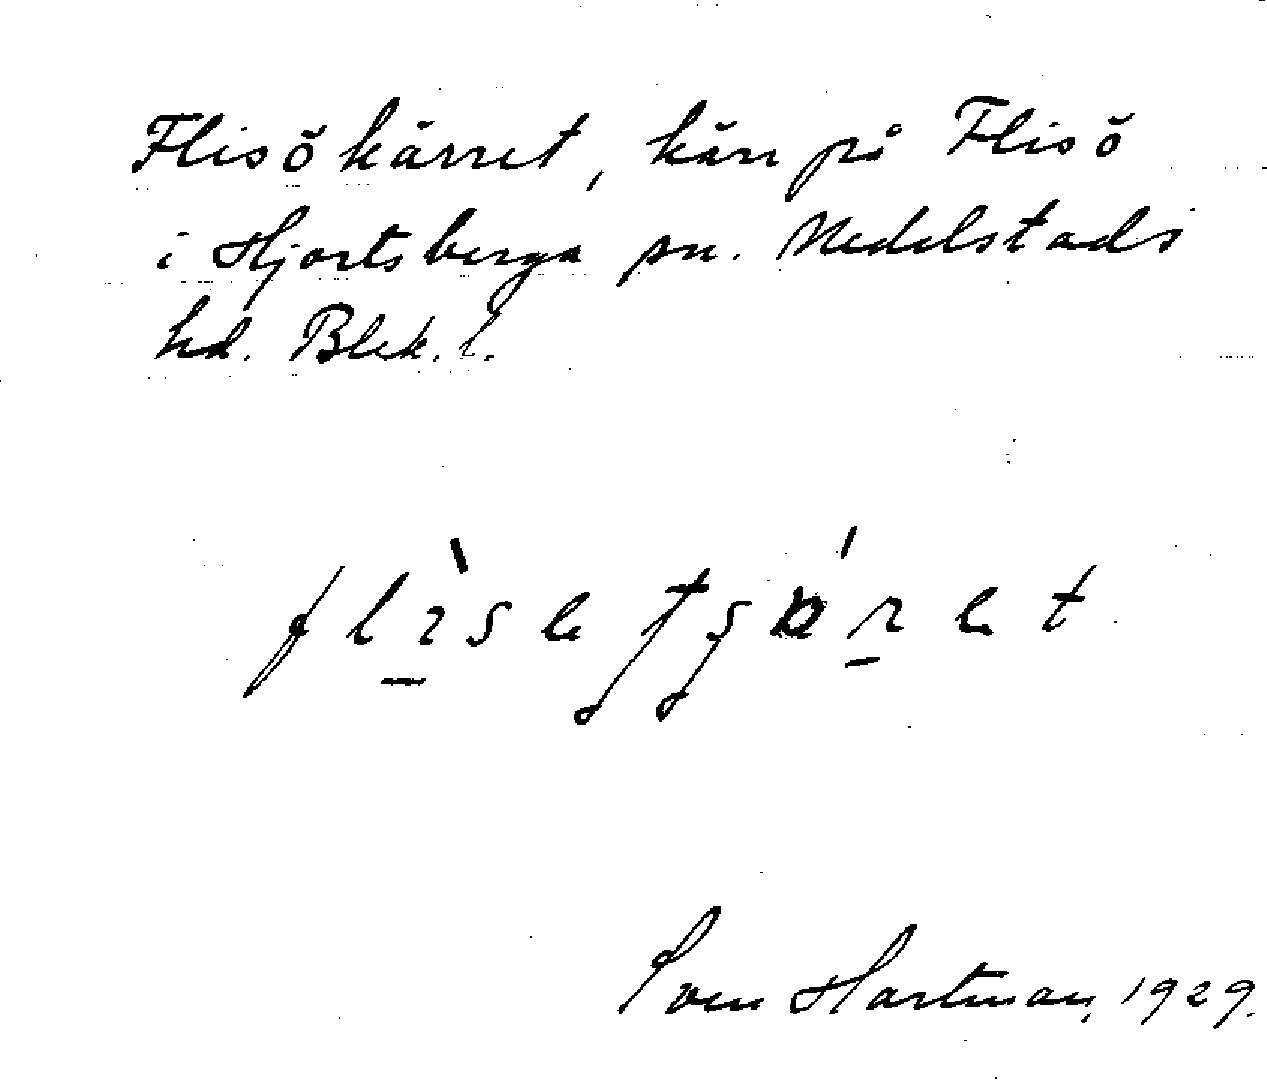 Flisökärret, kärr på Flisö
i Hjortsberga sn. Medelstads
hd. Blek. l.
Sven Hartman, 1929.